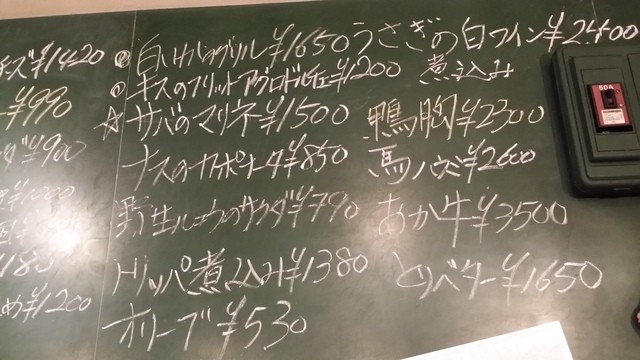 ーズ¥1420
¥990
ダ¥900
¥1000
¥1200
白いか ¥1650
キスのフリット アグロドルチェ¥1200
☆サバのマリネ¥1500
ナスのカポナータ¥850
野生 のサラダ¥790
トリッパ煮込み¥1380
オリーブ¥530
うさぎの白ワイン¥2400
煮込み
鴨胸¥2300
馬 ¥2600
あか牛¥3500
とりバター¥1650
50A